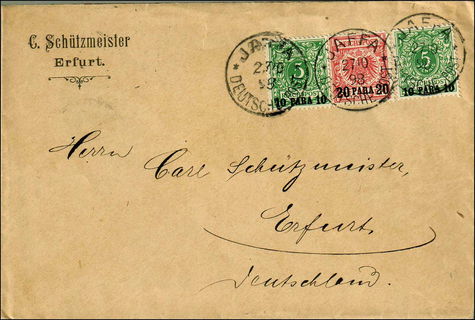 C. Schützmeister
Erfurt.
JAFFA
27/10
98
DEUTSCHE
5
10 PARA 10
JAFFA
27/10
98
DEUTSCHE
20 PARA 20
JAFFA
5
10 PARA 10
Herrn
Carl Schützmeister,
Erfurt,
Deutschland.